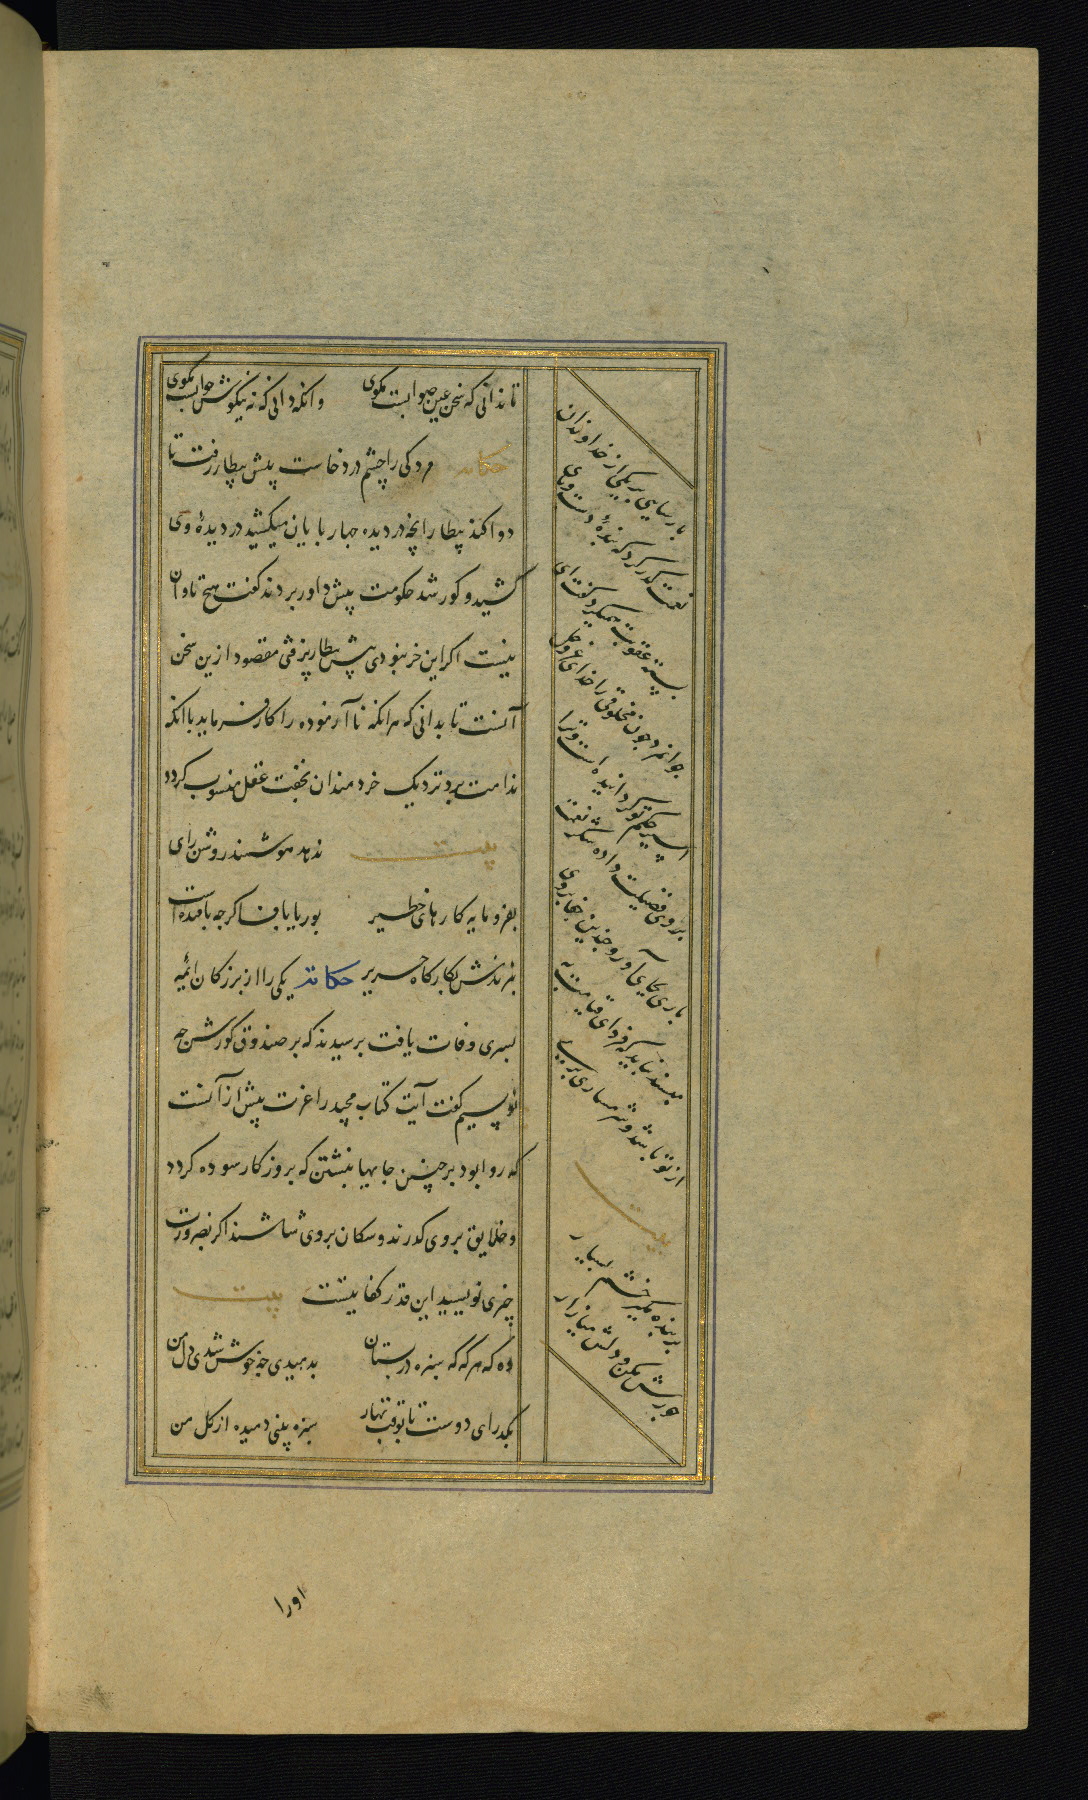 تا ندانی که سخن عین صوابست مکوی وانکه دانی که نه نیکوش جوابست مکوی
حکایت مردکی را چشم درد خاست پیش بیطار رفت تا
دوا کند بیطار انچه در دیده چهار پایان میکشید در دیدهٔ وی
کشید و کور شد حکومت پیش داور بردند کفت هیچ تاوان
نیست اکر این خر نبودی پیش بیطار نرفتی مقصود ازین سخن
آنست تا بدانی که هر انکه نا آزموده را کار فرماید با انکه
ندامت برد نزدیک خردمندان بخفت عقل منسوب کردد
بیت ندهد هوشمند روشن رای
بفرومایه کارهای خطیر بوریا باف اکرچه بافنده است
نبرندش بکارکاه حریر حکایت یکی را از بزرکان ائمه
پسری وفات یافت پرسیدند که بر صندوق کورش چه
نویسیم کفت آیت کتاب مجید را عزت بیش از آنست
که روا بود بر چنین جایها نبشتن که بروزکار سوده کردد
و خلایق بروی کذرند و سکان بروی شاشند اکر بضرورت
چیزی نویسید این قدر کفایتست بیت
وه که هر که که سبزه در بستان بدمیدی چه خوش شدی دل من
بکذر ای دوست تا بوقت بهار سبزه بینی دمیده از کل من
پارسایی بر یکی از خداوندان
نعمت کذر کرد که بندهٔ دست و پای
بسته عقوبت همیکرد کفت ای
جوانمرد چون مخلوقی را خدای عز و جل
اسیر حکم تو کردانیده است و ترا
بر وی فضیلت داده شکر نعمت
باری بجای آور و چندین جفا بر وی
مپسند نباید که فردای قیامت به
از تو باشد و شرمساری بری
بیت
بر بنده مکیر خشم بسیار
جورش مکن و دلش میازار
اورا